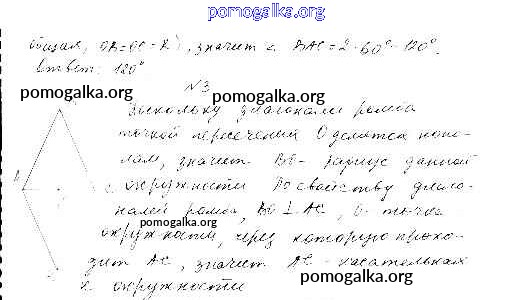 pomogalka.org
общая, OB=OC=R), значит < BAC = 2·60° = 120°.
Ответ: 120°
pomogalka.org
N3
pomogalka.org
Поскольку диагонали ромба
точкой пересечения O делятся попо-
pomogalka.org
лам, значит BO - радиус данной
окружности По свойству диаго-
налей ромба, BO ⊥ AC, O - точка
pomogalka.org
окружности, через которую прохо-
дит AC, значит AC - касательная
pomogalka.org
к окружности